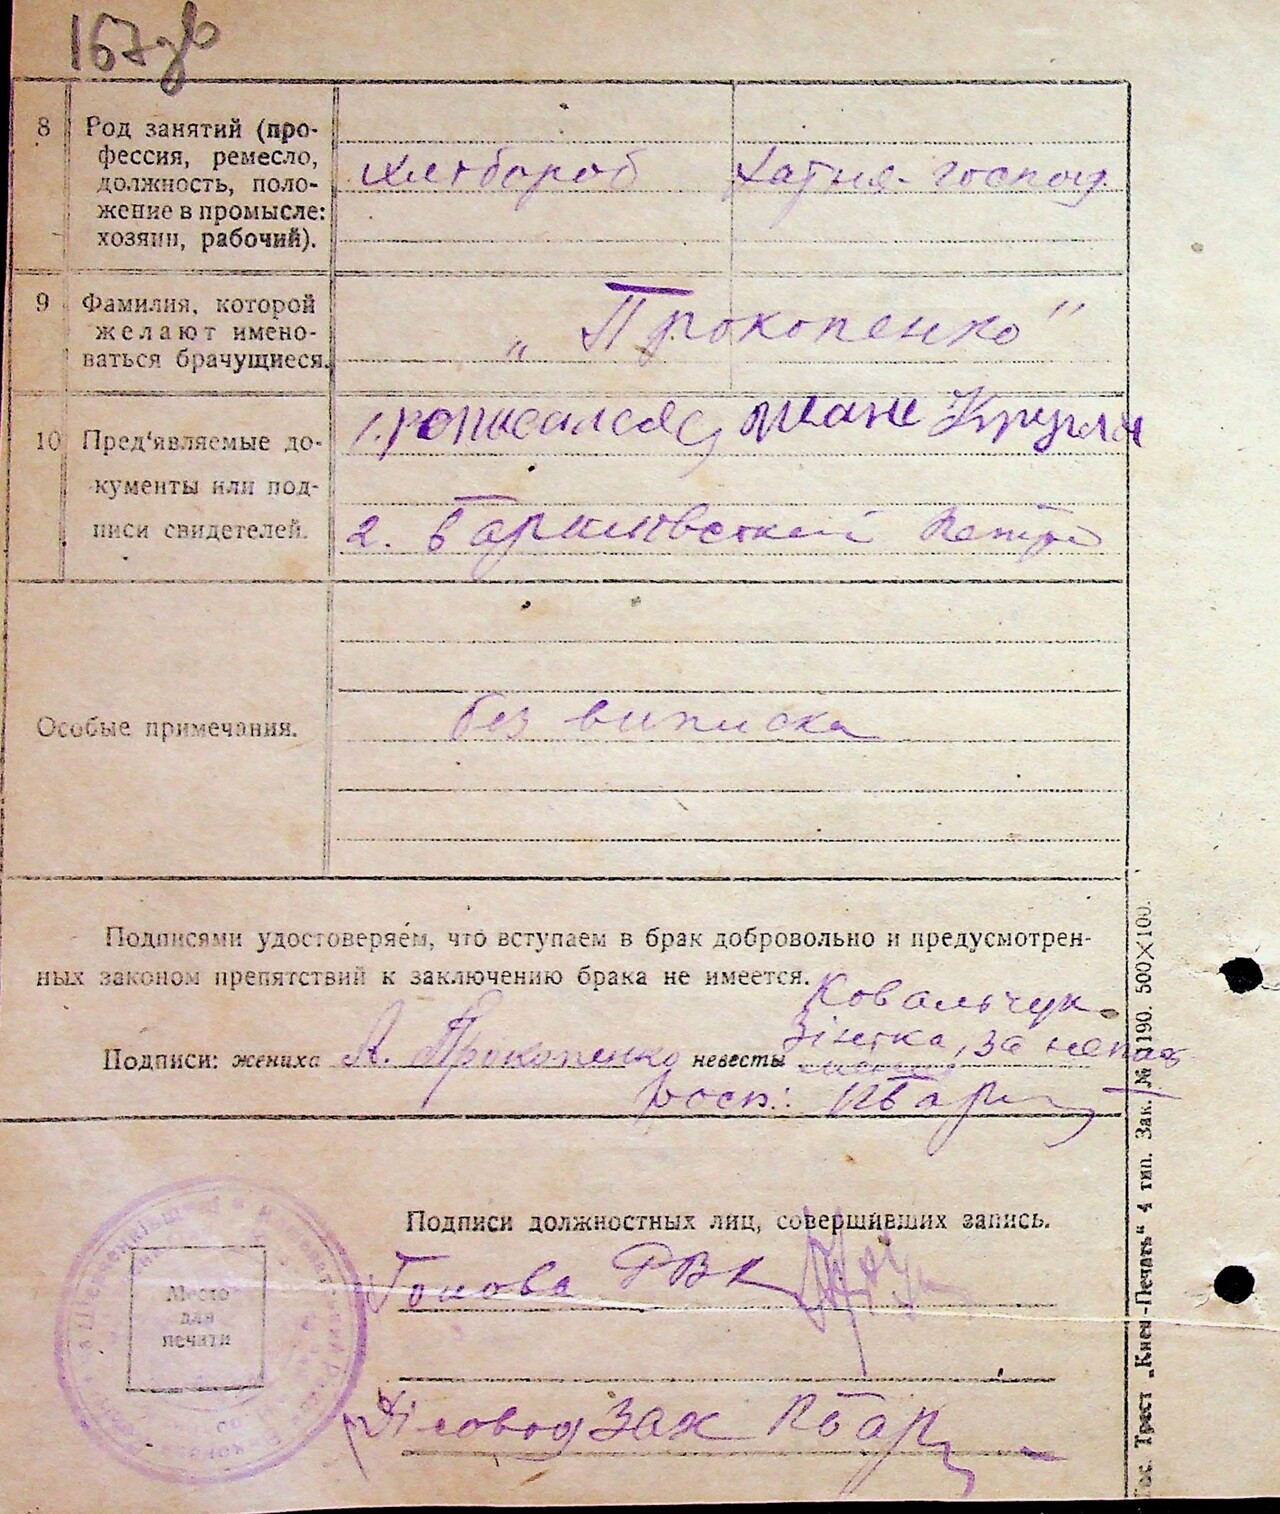 167зв
8 Род занятий (про-
фессия, ремесло,
должность, поло-
жение в промысле:
хозяин, рабочий).
Хлебороб Хатня-господ.
9 Фамилия, которой
желают имено-
ваться брачущиеся.
„Прокопенко"
10 Пред'являемые до-
кументы или под-
писи свидетелей.
1. рописался
2.
Особые примечания.
без виписка
Подписями удостоверяем, что вступаем в брак добровольно и предусмотрен-
ных законом препятствий к заключению брака не имеется.
Ковальчук
Подписи: жениха Л. Прокопенко невесты Зінька, за непис
росп.:
Подписи должностных лиц, совершивших запись.
Голова РВК
Место
для
печати
Діловод ЗАК
Гос. Трест „Киев-Печать“ 4 тип. Зак. № 1190. 500×100.